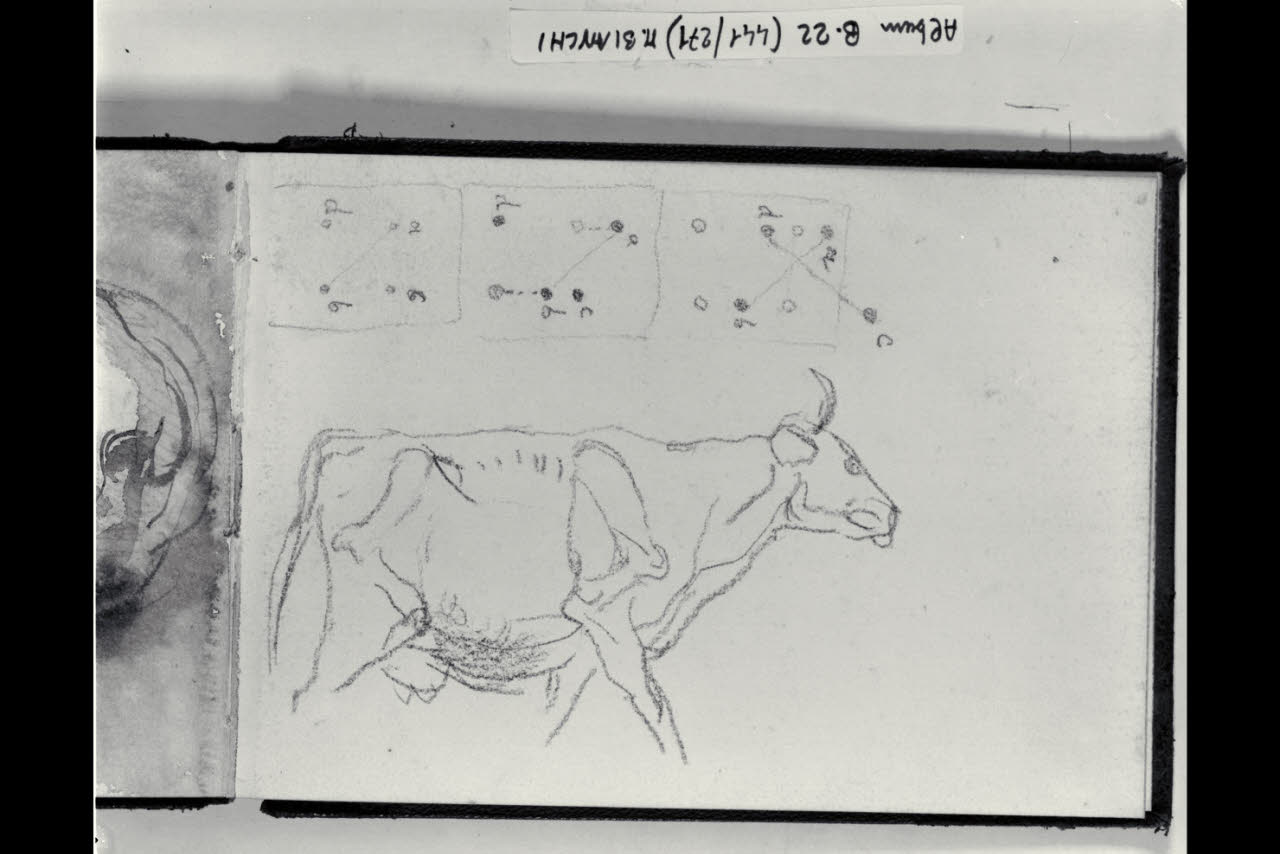 Album B.22 (441/271) M. BIANCHI
d a
b g
d a
b c
d a
b c